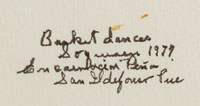 Basket dances
1979
Encarnacion Peña
San Ildefonso Pue